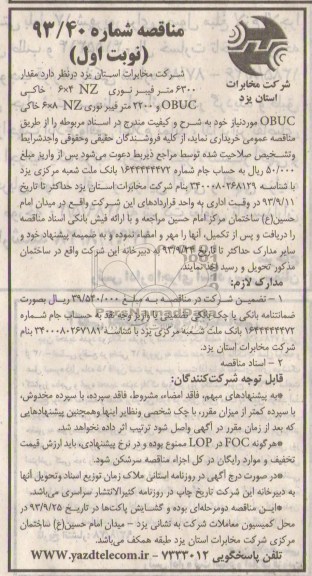 مناقصه شماره ۹۳/۴۰
(نوبت اول)
شرکت مخابرات
استان یزد
شرکت مخابرات استان یزد درنظر دارد مقدار
۶۳۰۰ متر فیبر نوری NZ ۶×۴ خاکی
OBUC و ۲۲۰۰ متر فیبر نوری NZ ۸×۶ خاکی
OBUC موردنیاز خود به شرح و کیفیت مندرج در اسناد مربوطه را از طریق
مناقصه عمومی خریداری نماید، از کلیه فروشندگان حقیقی وحقوقی واجدشرایط
وتشخیص صلاحیت شده توسط مراجع ذیربط دعوت می‌شود پس از واریز مبلغ
۵۰/۰۰۰ ریال به حساب جام شماره ۱۶۴۴۴۴۴۴۷۲ بانک ملت شعبه مرکزی یزد
با شناسه ۳۴۰۰۰۸۰۲۶۸۱۲۹ بنام شرکت مخابرات استان یزد حداکثر تا تاریخ
۹۳/۹/۱۱ در وقت اداری به واحد قراردادهای این شرکت واقع در میدان امام
حسین(ع) ساختمان مرکز امام حسین مراجعه و با ارائه فیش بانکی اسناد مناقصه
را دریافت و پس از تکمیل، آنها را مهر و امضاء نموده و به ضمیمه پیشنهاد خود و
سایر مدارک حداکثر تا تاریخ ۹۳/۹/۲۴ به دبیرخانه این شرکت واقع در ساختمان
مذکور تحویل و رسید اخذ نمایند.
مدارک لازم:
۱ – تضمین شرکت در مناقصه به مبلغ ۳۹/۵۳۰/۰۰۰ ریال بصورت
ضمانتنامه بانکی یا چک بانکی تضمینی یا واریز وجه نقد به حساب جام شماره
۱۶۴۴۴۴۴۴۷۲ بانک ملت شعبه مرکزی یزد با شناسه ۳۴۰۰۰۸۰۲۶۷۱۸۲ بنام
شرکت مخابرات استان یزد.
۲ – اسناد مناقصه
قابل توجه شرکت‌کنندگان:
•به پیشنهادهای مبهم، فاقد امضاء، مشروط، فاقد سپرده، با سپرده مخدوش،
با سپرده کمتر از میزان مقرر، با چک شخصی ونظایر اینها وهمچنین پیشنهادهایی
که بعد از زمان مقرر در آگهی واصل شود ترتیب اثر داده نخواهد شد.
•هرگونه FOC در LOP ممنوع بوده و در نرخ پیشنهادی، باید ارزش قیمت
تخفیف و موارد رایگان در کل اجزاء مناقصه سرشکن شود.
•در صورت درج آگهی در روزنامه استانی ملاک زمان توزیع اسناد وتحویل آنها
به دبیرخانه این شرکت تاریخ چاپ در روزنامه کثیرالانتشار سراسری می‌باشد.
•این مناقصه دومرحله‌ای بوده و گشایش پاکت‌ها در تاریخ ۹۳/۹/۲۵ در
محل کمیسیون معاملات شرکت به نشانی یزد – میدان امام حسین(ع) ساختمان
مرکزی شرکت مخابرات استان یزد طبقه همکف می‌باشد.
تلفن پاسخگویی ۷۲۳۳۰۱۲ – WWW.yazdtelecom.ir